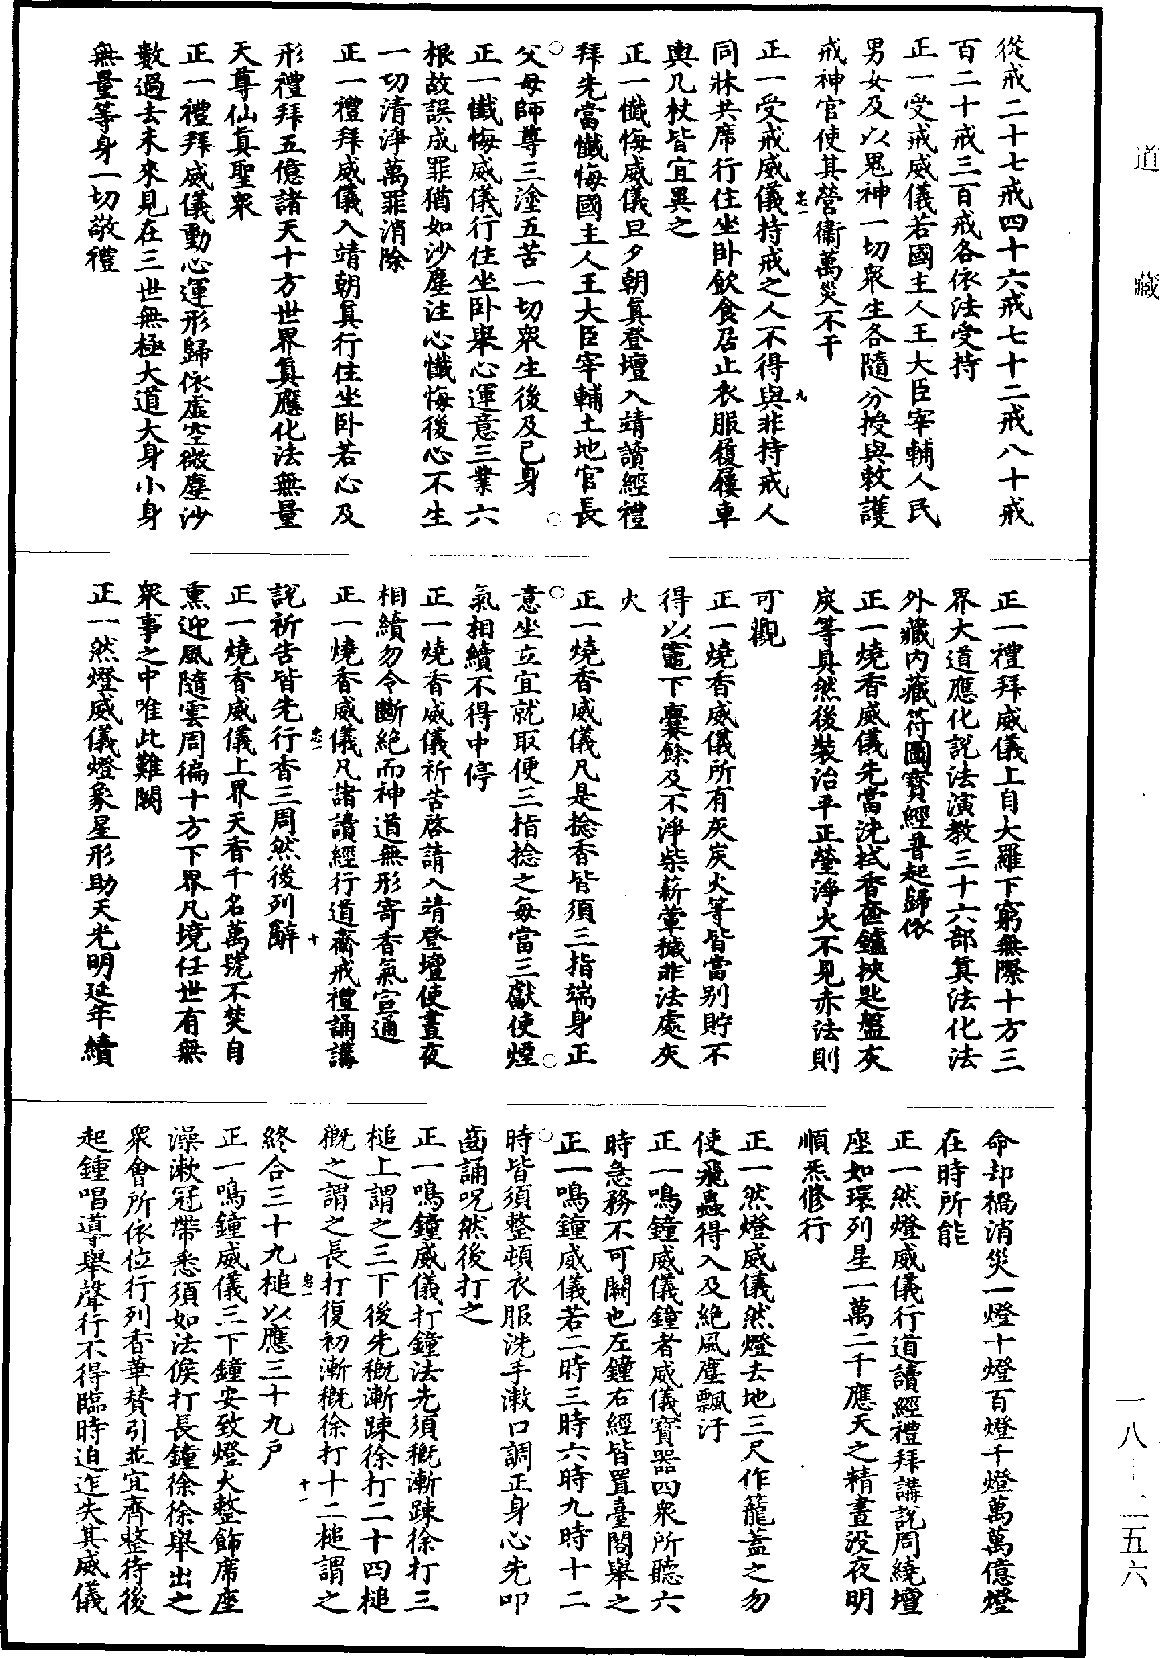 道藏
從戒二十七戒四十六戒七十二戒八十戒
百二十戒三百戒各依法受持
正一受戒威儀若國主人王大臣宰輔人民
男女及以鬼神一切衆生各隨分授與敕護
戒神官使其營衞萬災不干
正一受戒威儀持戒之人不得與非持戒人
同牀共席行住坐卧飲食居止衣服履屧車
輿几杖皆宜異之
正一懺悔威儀旦夕朝真登壇入靖讀經禮
拜先當懺悔國主人王大臣宰輔土地官長
父母師尊三塗五苦一切衆生後及己身
正一懺悔威儀行住坐卧舉心運意三業六
根故誤成罪猶如沙塵注心懺悔後心不生
一切清淨萬罪消除
正一禮拜威儀入靖朝真行住坐卧若心及
形禮拜五億諸天十方世界真應化法無量
天尊仙真聖衆
正一禮拜威儀動心運形歸依虛空微塵沙
數過去未來見在三世無極大道大身小身
無量等身一切敬禮
正一禮拜威儀上自大羅下窮無際十方三
界大道應化說法演教三十六部真法化法
外藏内藏符圖寶經普起歸依
正一燒香威儀先當洗拭香奩鑪挾匙盤灰
炭等具然後裝治平正瑩淨火不見赤法則
可觀
正一燒香威儀所有灰炭火等皆當别貯不
得以竈下爨餘及不淨柴薪葷穢非法處灰
火
正一燒香威儀凡是捻香皆須三指端身正
意坐立宜就取便三指捻之每當三獻使煙
氣相續不得中停
正一燒香威儀祈告啓請入靖登壇使晝夜
相續勿令斷絶而神道無形寄香氣宣通
正一燒香威儀凡諸讀經行道齋戒禮誦講
說祈告皆先行香三周然後列辭
正一燒香威儀上界天香千名萬號不焚自
熏迎風隨雲周徧十方下界凡境任世有無
衆事之中唯此難闕
正一然燈威儀燈象星形助天光明延年續
命却禍消災一燈十燈百燈千燈萬萬億燈
在時所能
正一然燈威儀行道讀經禮拜講說周繞壇
座如環列星一萬二千應天之精晝没夜明
順炁修行
正一然燈威儀然燈去地三尺作籠蓋之勿
使飛蟲得入及絶風塵飄汙
正一鳴鐘威儀鐘者威儀寶器四衆所聽六
時急務不可闕也左鐘右經皆置臺閣舉之
正一鳴鐘威儀若二時三時六時九時十二
時皆須整頓衣服洗手漱口調正身心先叩
齒誦呪然後打之
正一鳴鐘威儀打鐘法先須穊漸踈徐打三
槌上謂之三下後先穊漸踈徐打二十四槌
穊之謂之長打復初漸穊徐打十二槌謂之
終合三十九槌以應三十九户
正一鳴鐘威儀三下鐘安致燈火整飾席座
澡漱冠帶悉須如法俟打長鐘徐徐舉出之
衆會所依位行列香華賛引並宜齊整待後
起鍾唱導舉聲行不得臨時迫迮失其威儀
一八—二五六